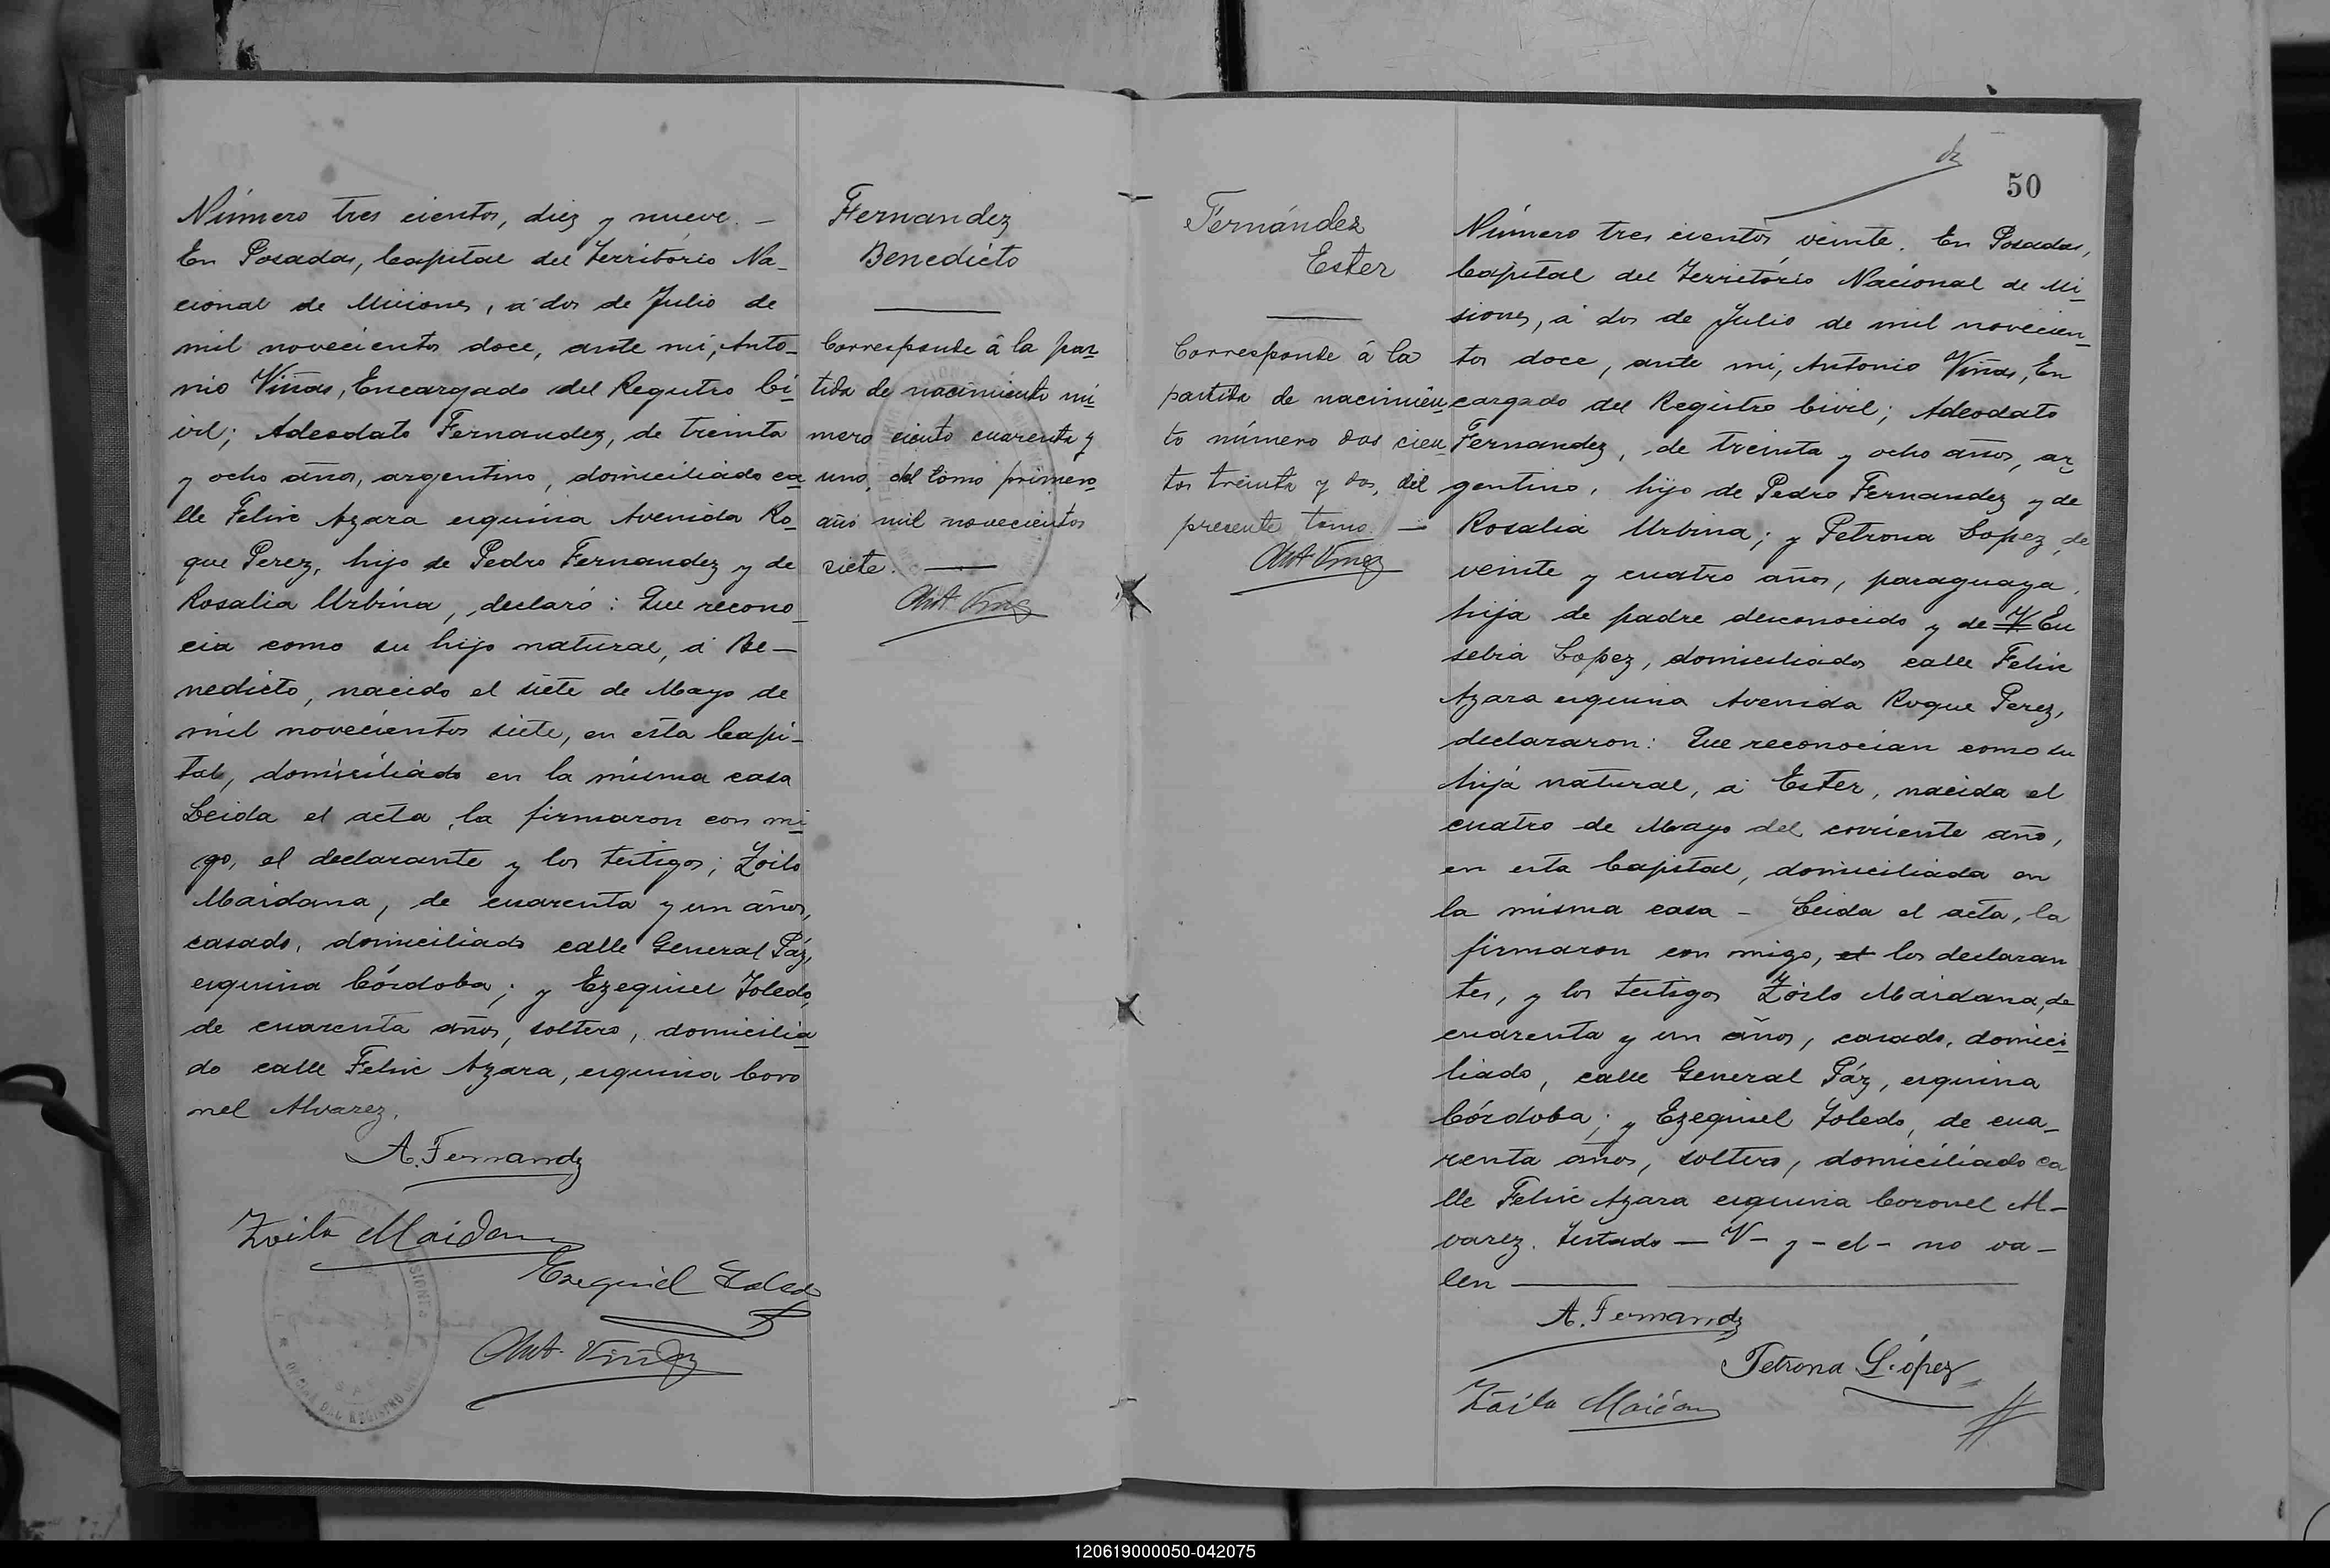 Número tres cientos, diez y nueve. —
En Posadas, Capital del Territorio Na-
cional de Misiones, á dos de Julio de
mil novecientos doce, ante mi, Anto-
nio Viñas, Encargado del Registro Ci-
vil; Adeodato Fernandez, de treinta
y ocho años, argentino, domiciliado ca
lle Felix Azara esquina Avenida Ro-
que Perez, hijo de Pedro Fernandez y de
Rosalia Urbina, declaró: Que recono-
cia como su hijo natural, á Be—
nedicto, nacido el siete de Mayo de
mil novecientos siete, en esta Capi-
tal, domiciliado en la misma casa
Leida el acta, la firmaron con mi-
go, el declarante y los testigos; Zoilo
Maidana, de cuarenta y un años,
casado, domiciliado calle General Páz,
esquina Córdoba; y Ezequiel Toledo,
de cuarenta años, soltero, domicilia
do calle Felix Azara, esquina Coro
nel Alvarez.
A. Fernandz
Zoilo Maidan
Ezequiel Toledo
Ant. Viñas
Fernandez
Benedicto
Corresponde á la par-
tida de nacimiento nú-
mero ciento cuarenta y
uno, del tomo primero
año mil novecientos
siete. —
Ant. Viñas
Fernández
Ester
Corresponde á la
partida de nacimien
to número dos cien
tos treinta y dos, del
presente tomo. —
Ant. Viñas
50
Número tres cientos veinte. En Posadas,
Capital del Territorio Nacional de Mi-
siones, á dos de Julio de mil novecien-
tos doce, ante mi, Antonio Viñas, En
cargado del Registro Civil; Adeodato
Fernandez, de treinta y ocho años, ar
gentino, hijo de Pedro Fernandez y de
Rosalia Urbina; y Petrona Lopez, de
veinte y cuatro años, paraguaya,
hija de padre desconocido y de V Eu
sebia Lopez, domiciliados calle Felix
Azara esquina Avenida Roque Perez,
declararon: Que reconocian como su
hija natural, á Ester, nacida el
cuatro de Mayo del corriente año,
en esta Capital, domiciliada en
la misma casa — Leida el acta, la
firmaron con migo, el los declaran
tes, y los testigos Zoilo Maidana, de
cuarenta y un años, casado, domici-
liado, calle General Páz, esquina
Córdoba; y Ezequiel Toledo, de cua-
renta años, soltero, domiciliado ca
lle Felix Azara esquina Coronel Al-
varez. Testado — V — y — el — no va-
len —
A. Fernandz
Petrona López
Zoilo Maidan
120619000050-042075